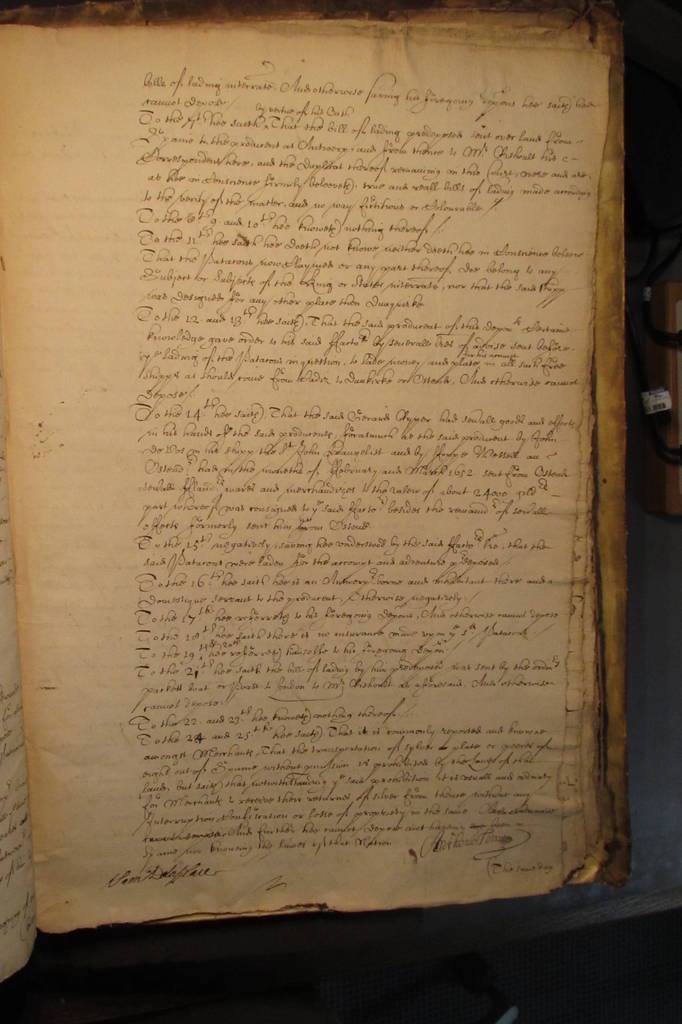 bills of lading interrate. And otherwise saving his foregoing deposn hee saith hee
cannot depose
by vertue of his Oath
To the 7th hee saith That the bill of lading predeposed sent over land from
Spaine to the producent at Antwerp, and from thence to Mr Richault his
Correspondent here, and the duplicat thereof remaining in this Court were and are
as hee in Conscience firmly beleeveth, true and reall bills of lading made according
to the verity of the matter, and no way fictitious or Colourable
To the 8th 9 and 10th hee knoweth nothing thereof
To the 11th hee saith hee doeth not knowe neither doeth hee in Conscience beleeve
That the Patacons now claymed or any part thereof doe belong to any
Subject or Subjects of the King or States interrate, nor that the said shipp
was designed for any other place then Dunquirke
To the 12 and 13th hee saith, That the said producent of this deponts Certaine
knowledge gave order to his said Factor by severall of advise sent before
ye lading of the Patacons in question, to lade money and plate in all such free
for his account
shipps as should come from Cadiz to Dunkirke or Ostend, And otherwise cannot
Depose
To the 14th hee saith, That the said Gerard had sevall goods and effects
in his hands of the said producents, forasmuch as the said producent by John
de Vos in his shipp the St John Evangelist and by an
Ostend had in the moneths of February and March 1652 sent from Ostend
sevall wares and merchandizes to the valew of about 24000
part whereof was consigned to ye said Factor besides the remaind of sevall
effects formerly sent him from Ostend
To the 15th negatively, saving hee understood by the said Factors that the
said Patacons were laden for the account and adventure predeposed
To the 16th hee saith hee is an Antwerp borne and inhabitant there and a
domestique servant to the producent, Otherwise negatively.
To the 17th hee referreth to his foregoing deposn, And otherwise cannot depose
To the 18th hee saith there is no insurance made upon ye sd Patacons
To the 19th and 20th hee referreth himselfe to his foregoing deposn
To the 21th hee saith the bill of lading by him predeposed was sent by the ordinry
packett boat or Post to London to Mr Richault as aforesaid, And otherwise
cannot depose
To the 22 and 23th hee knoweth nothing thereof
To the 24 and 25th hee saith, That it is commonly reported and knowne
amongst Merchants, That the transportation of sylver plate or peeces of
eight out of Spaine without permission is prohibited by the lawes of that
land, but saith that notwithstanding ye said prohibition it is usuall and ordinary
for Merchants to receive their returnes of silver from thence without any
Interruption Confiscation or losse of propriety in the same
And further hee cannot depose not having
Spaine nor knowing the lawes of that Nation
(The same day